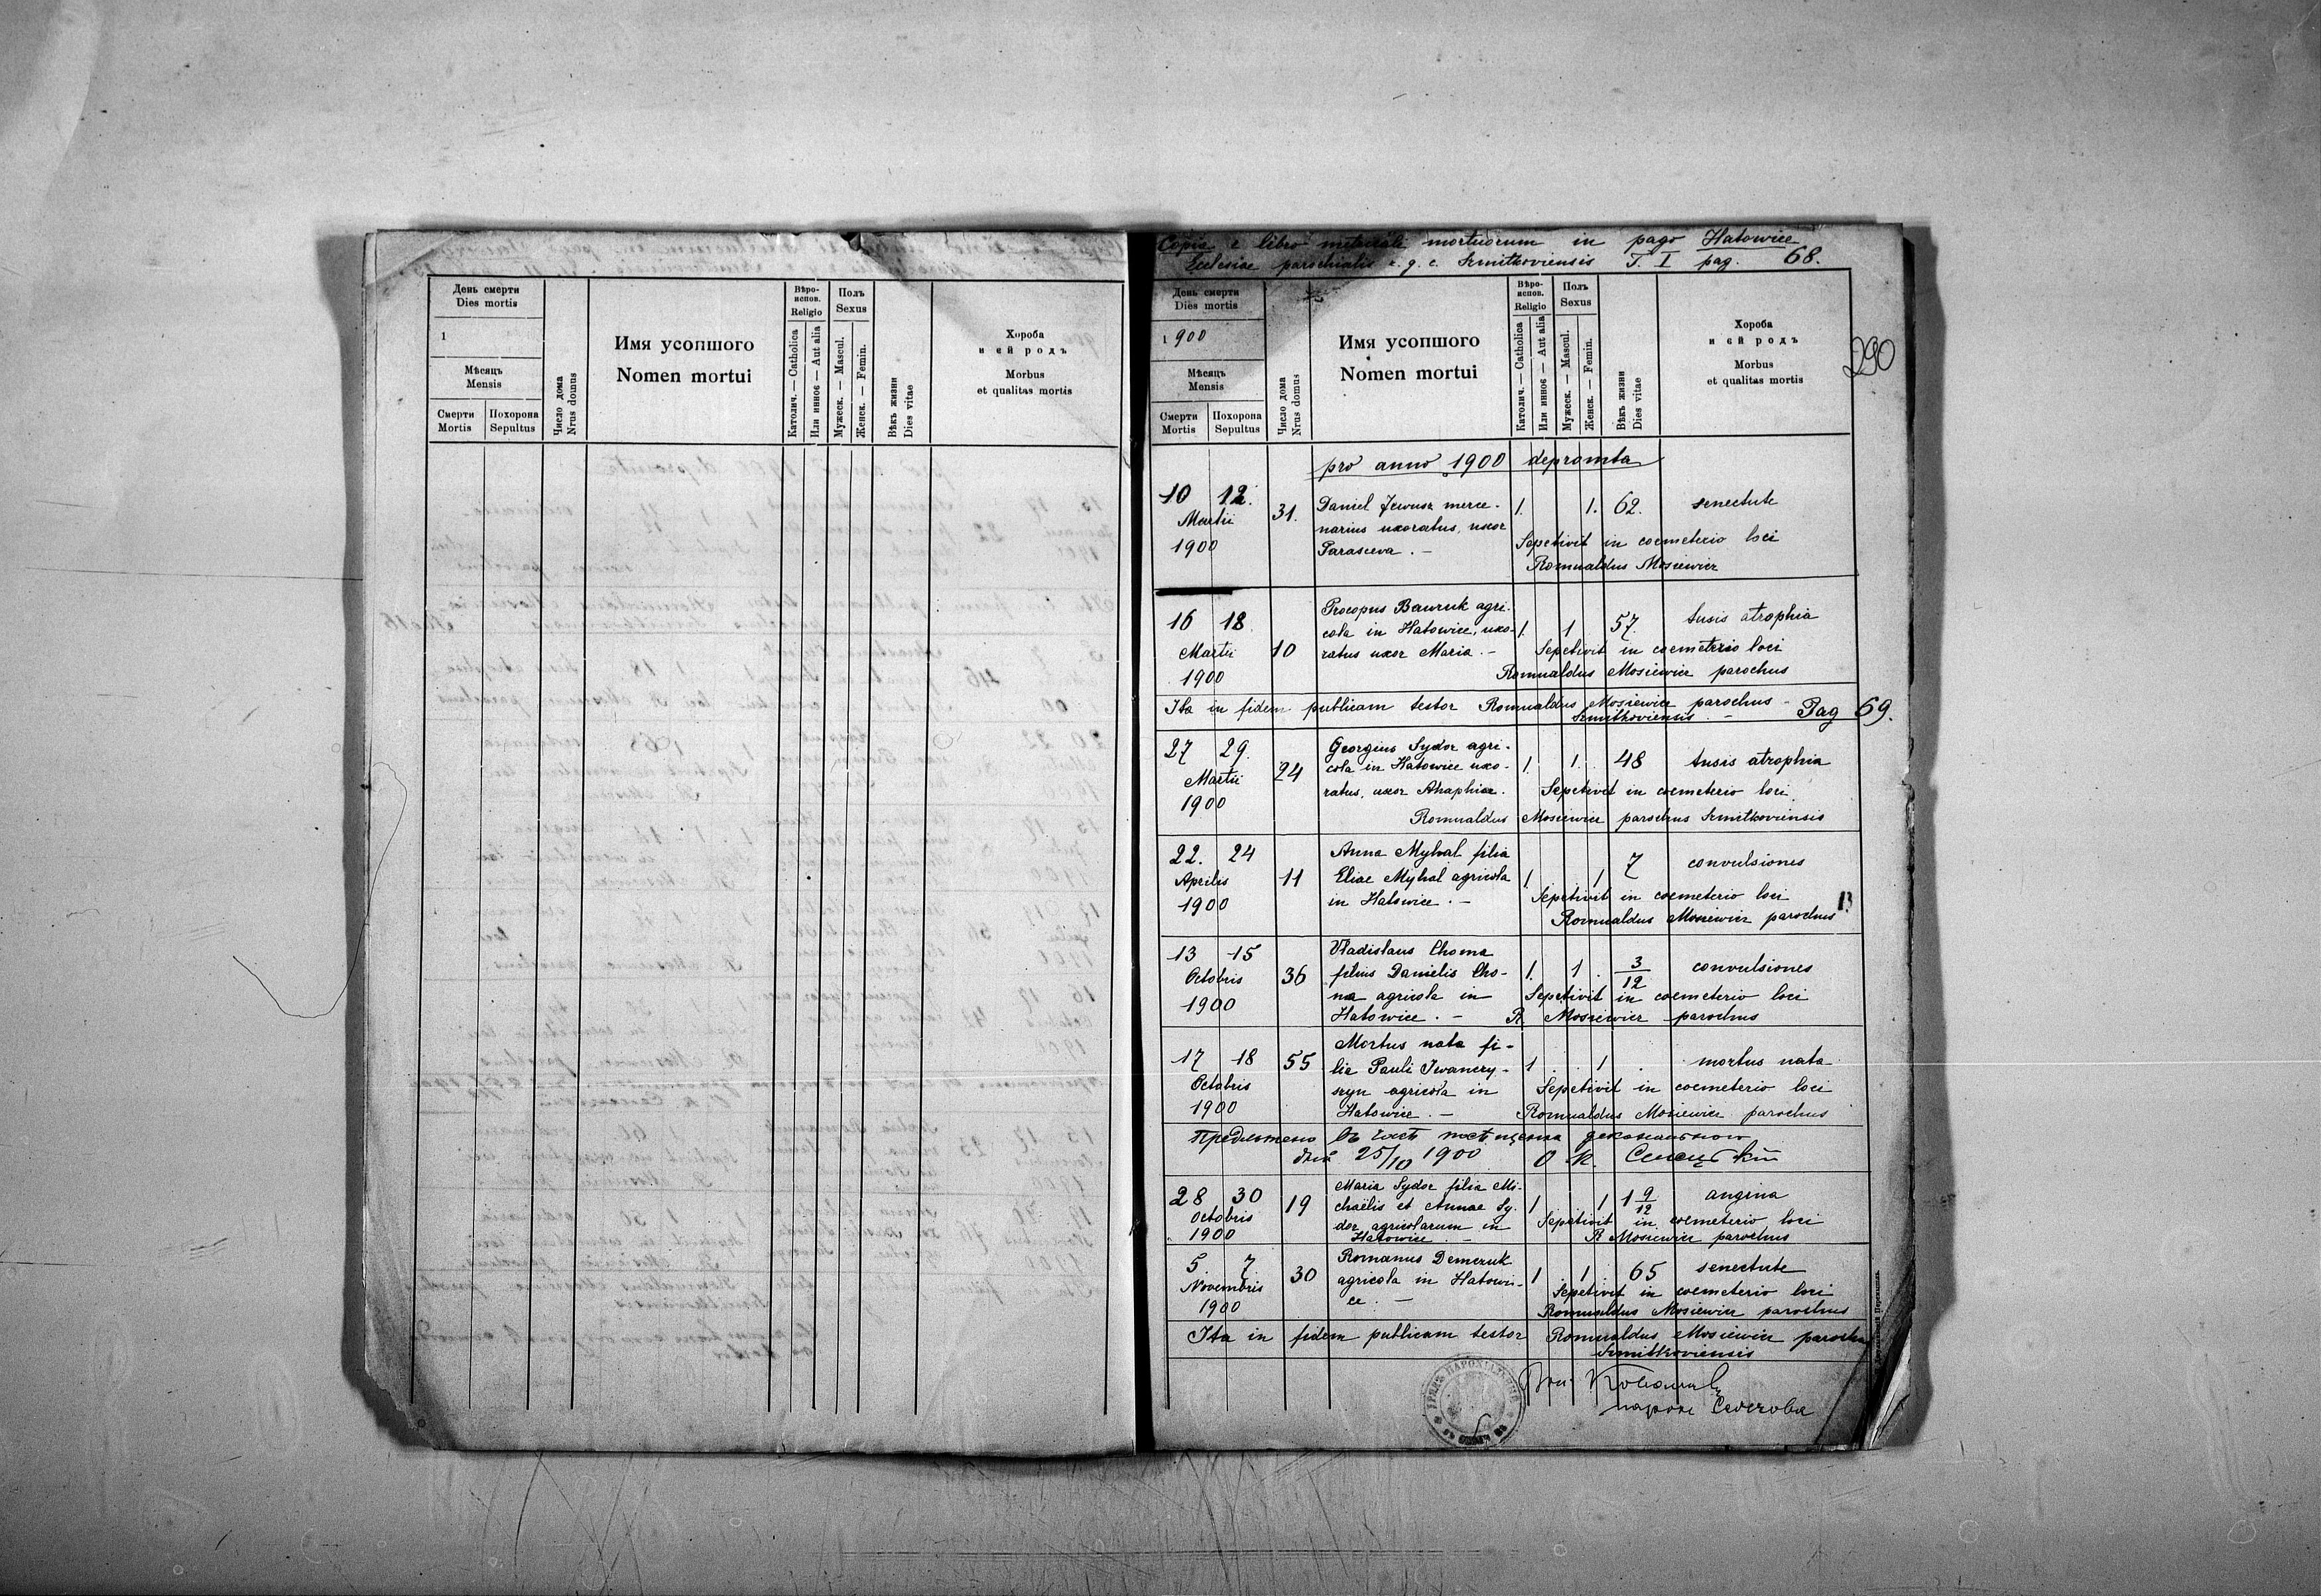 День смерти
Dies mortis
1
Мѣсяць
Mensis
Смерти
Mortis
Похорона
Sepultus
Число дома
Nrus domus
Имя усопшого
Nomen mortui
Вѣро-
испов.
Religio
Католич. — Catholica
Или инноє — Aut alia
Полъ
Sexus
Мужеск. — Mascul.
Женск. — Femin.
Вѣкъ жизни
Dies vitae
Хороба
и єй родъ
Morbus
et qualitas mortis
Copia e libro metricali mortuorum in pago Hatowice
Ecclesiae parochialis r. g. c. Szmitkoviensis T. I pag. 68.
290
День смерти
Dies mortis
1900
Мѣсяць
Mensis
Смерти
Mortis
Похорона
Sepultus
Число дома
Nrus domus
Имя усопшого
Nomen mortui
Вѣро-
испов.
Religio
Католич. — Catholica
Или инноє — Aut alia
Полъ
Sexus
Мужеск. — Mascul.
Женск. — Femin.
Вѣкъ жизни
Dies vitae
Хороба
и єй родъ
Morbus
et qualitas mortis
pro anno 1900 depromta
10 12. Martii 1900 31. Daniel Jewusz merce-
narius uxoratus, uxor
Parasceva. —
1. 1. 62. senectute
Sepelivit in coemeterio loci
Romualdus Mosiewicz
16 18 Martii 1900 10 Procopus Bawruk agri-
cola in Hatowice, uxo-
ratus uxor Maria. —
1. 1 57. tusis atrophia
Sepelivit in coemeterio loci
Romualdus Mosiewicz parochus
Ita in fidem publicam testor Romualdus Mosiewicz parochus
Szmitkoviensis. — Pag 69.
27 29. Martii 1900 24 Georgius Sydor agri-
cola in Hatowice uxo-
ratus, uxor Ahaphia.
1. 1. 48 tusis atrophia
Sepelivit in coemeterio loci
Romualdus Mosiewicz parochus Szmitkoviensis
22. 24 Aprilis 1900 11 Anna Myhal filia
Eliae Myhal agricola
in Hatowice. —
1 1 7 convulsiones
Sepelivit in coemeterio loci
Romualdus Mosiewicz parochus
13 15 Octobris 1900 36 Vladislaus Choma
filius Danielis Cho-
ma agricola in
Hatowice. —
1. 1. 3/12 convulsiones
Sepelivit in coemeterio loci
R Mosiewicz parochus
17 18 Octobris 1900 55 Mortus nata fi-
lia Pauli Iwanczy-
szyn agricola in
Hatowice. —
1 1 mortus nata
Sepelivit in coemeterio loci
Romualdus Mosiewicz parochus
25/10 1900
28 30 Octobris 1900 19 Maria Sydor filia Mi-
chaëlis et Annae Sy-
dor agricolarum in
Hatowice. —
1 1 1 9/12 angina
Sepelivit in coemeterio loci
R Mosiewicz parochus
5 7 Novembris 1900 30 Romanus Demczuk
agricola in Hatowi-
ce. —
1 1 65 senectute
Sepelivit in coemeterio loci
Romualdus Mosiewicz parochus
Ita in fidem publicam testor Romualdus Mosiewicz parochus
Szmitkoviensis